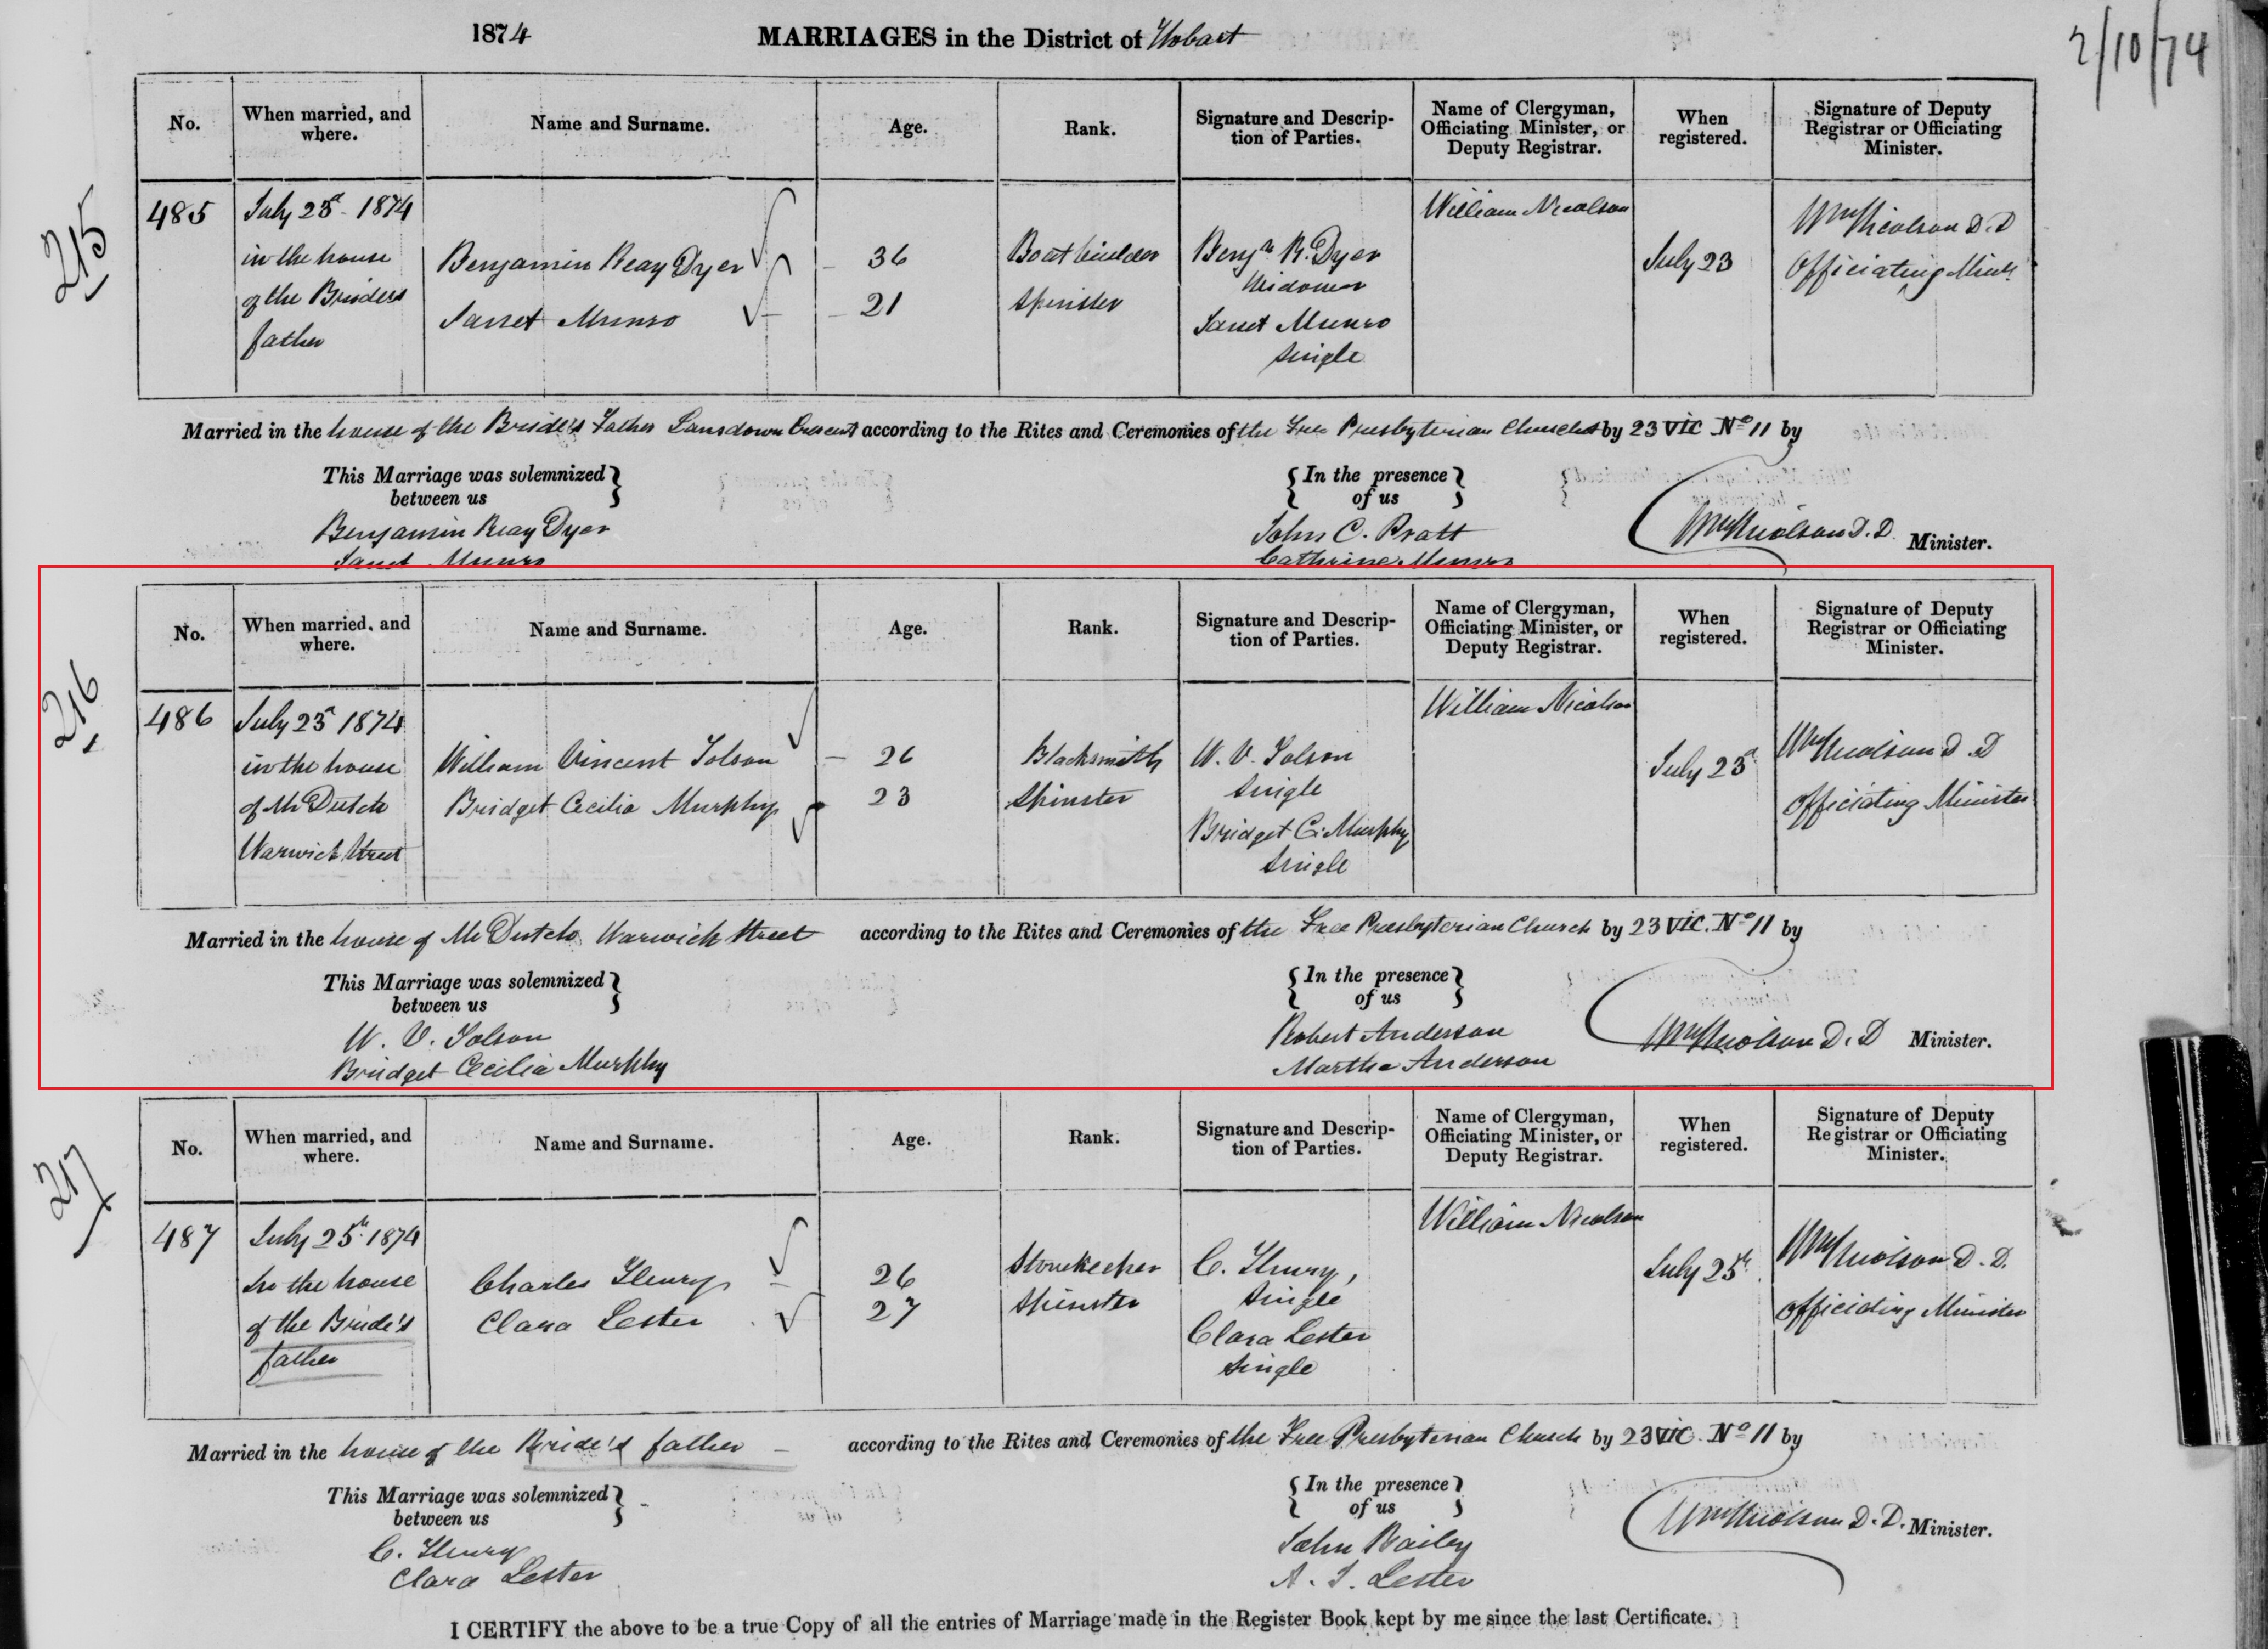 1874 MARRIAGES in the District of Hobart
2/10/74
No. When married, and where. Name and Surname. Age. Rank. Signature and Description of Parties. Name of Clergyman, Officiating Minister, or Deputy Registrar. When registered. Signature of Deputy Registrar or Officiating Minister.
215
485 July 23d 1874 William Nicolson
in the house Benjamin Reay Dyer 36 Boatbuilder Benjn R. Dyer July 23 Wm Nicolson D.D
of the Brides Widower Officiating Minr
father Janet Munro 21 Spinster Janet Munro
Single
Married in the house of the Bride's Father Lansdown Crescent according to the Rites and Ceremonies of the Free Presbyterian Church by 23 VIC No 11 by
This Marriage was solemnized between us
In the presence of us
Benjamin Reay Dyer John C. Pratt Wm Nicolson D.D. Minister.
Janet Munro Cathrine Munro
No. When married, and where. Name and Surname. Age. Rank. Signature and Description of Parties. Name of Clergyman, Officiating Minister, or Deputy Registrar. When registered. Signature of Deputy Registrar or Officiating Minister.
216
486 July 23d 1874 William Nicolson
in the house William Vincent Tolson 26 Blacksmith W. V. Tolson July 23d Wm Nicolson D.D
of Mr Dutch Bridget Cecilia Murphy 23 Spinster Single Officiating Minister
Warwick Street Bridget C. Murphy
Single
Married in the house of Mr Dutch Warwick Street according to the Rites and Ceremonies of the Free Presbyterian Church by 23 VIC. No 11 by
This Marriage was solemnized between us
In the presence of us
W. V. Tolson Robert Anderson Wm Nicolson D.D Minister.
Bridget Cecilia Murphy Martha Anderson
No. When married, and where. Name and Surname. Age. Rank. Signature and Description of Parties. Name of Clergyman, Officiating Minister, or Deputy Registrar. When registered. Signature of Deputy Registrar or Officiating Minister.
217
487 July 25th 1874 William Nicolson
In the house Charles Henry 26 Storekeeper C. Henry, July 25th Wm Nicolson D.D.
of the Bride's Clara Lester 27 Spinster Single Officiating Minister
father Clara Lester
Single
Married in the house of the Bride's father according to the Rites and Ceremonies of the Free Presbyterian Church by 23 VIC. No 11 by
This Marriage was solemnized between us
In the presence of us
C. Henry John Bailey Wm Nicolson D.D. Minister.
Clara Lester A. J. Lester
I CERTIFY the above to be a true Copy of all the entries of Marriage made in the Register Book kept by me since the last Certificate.